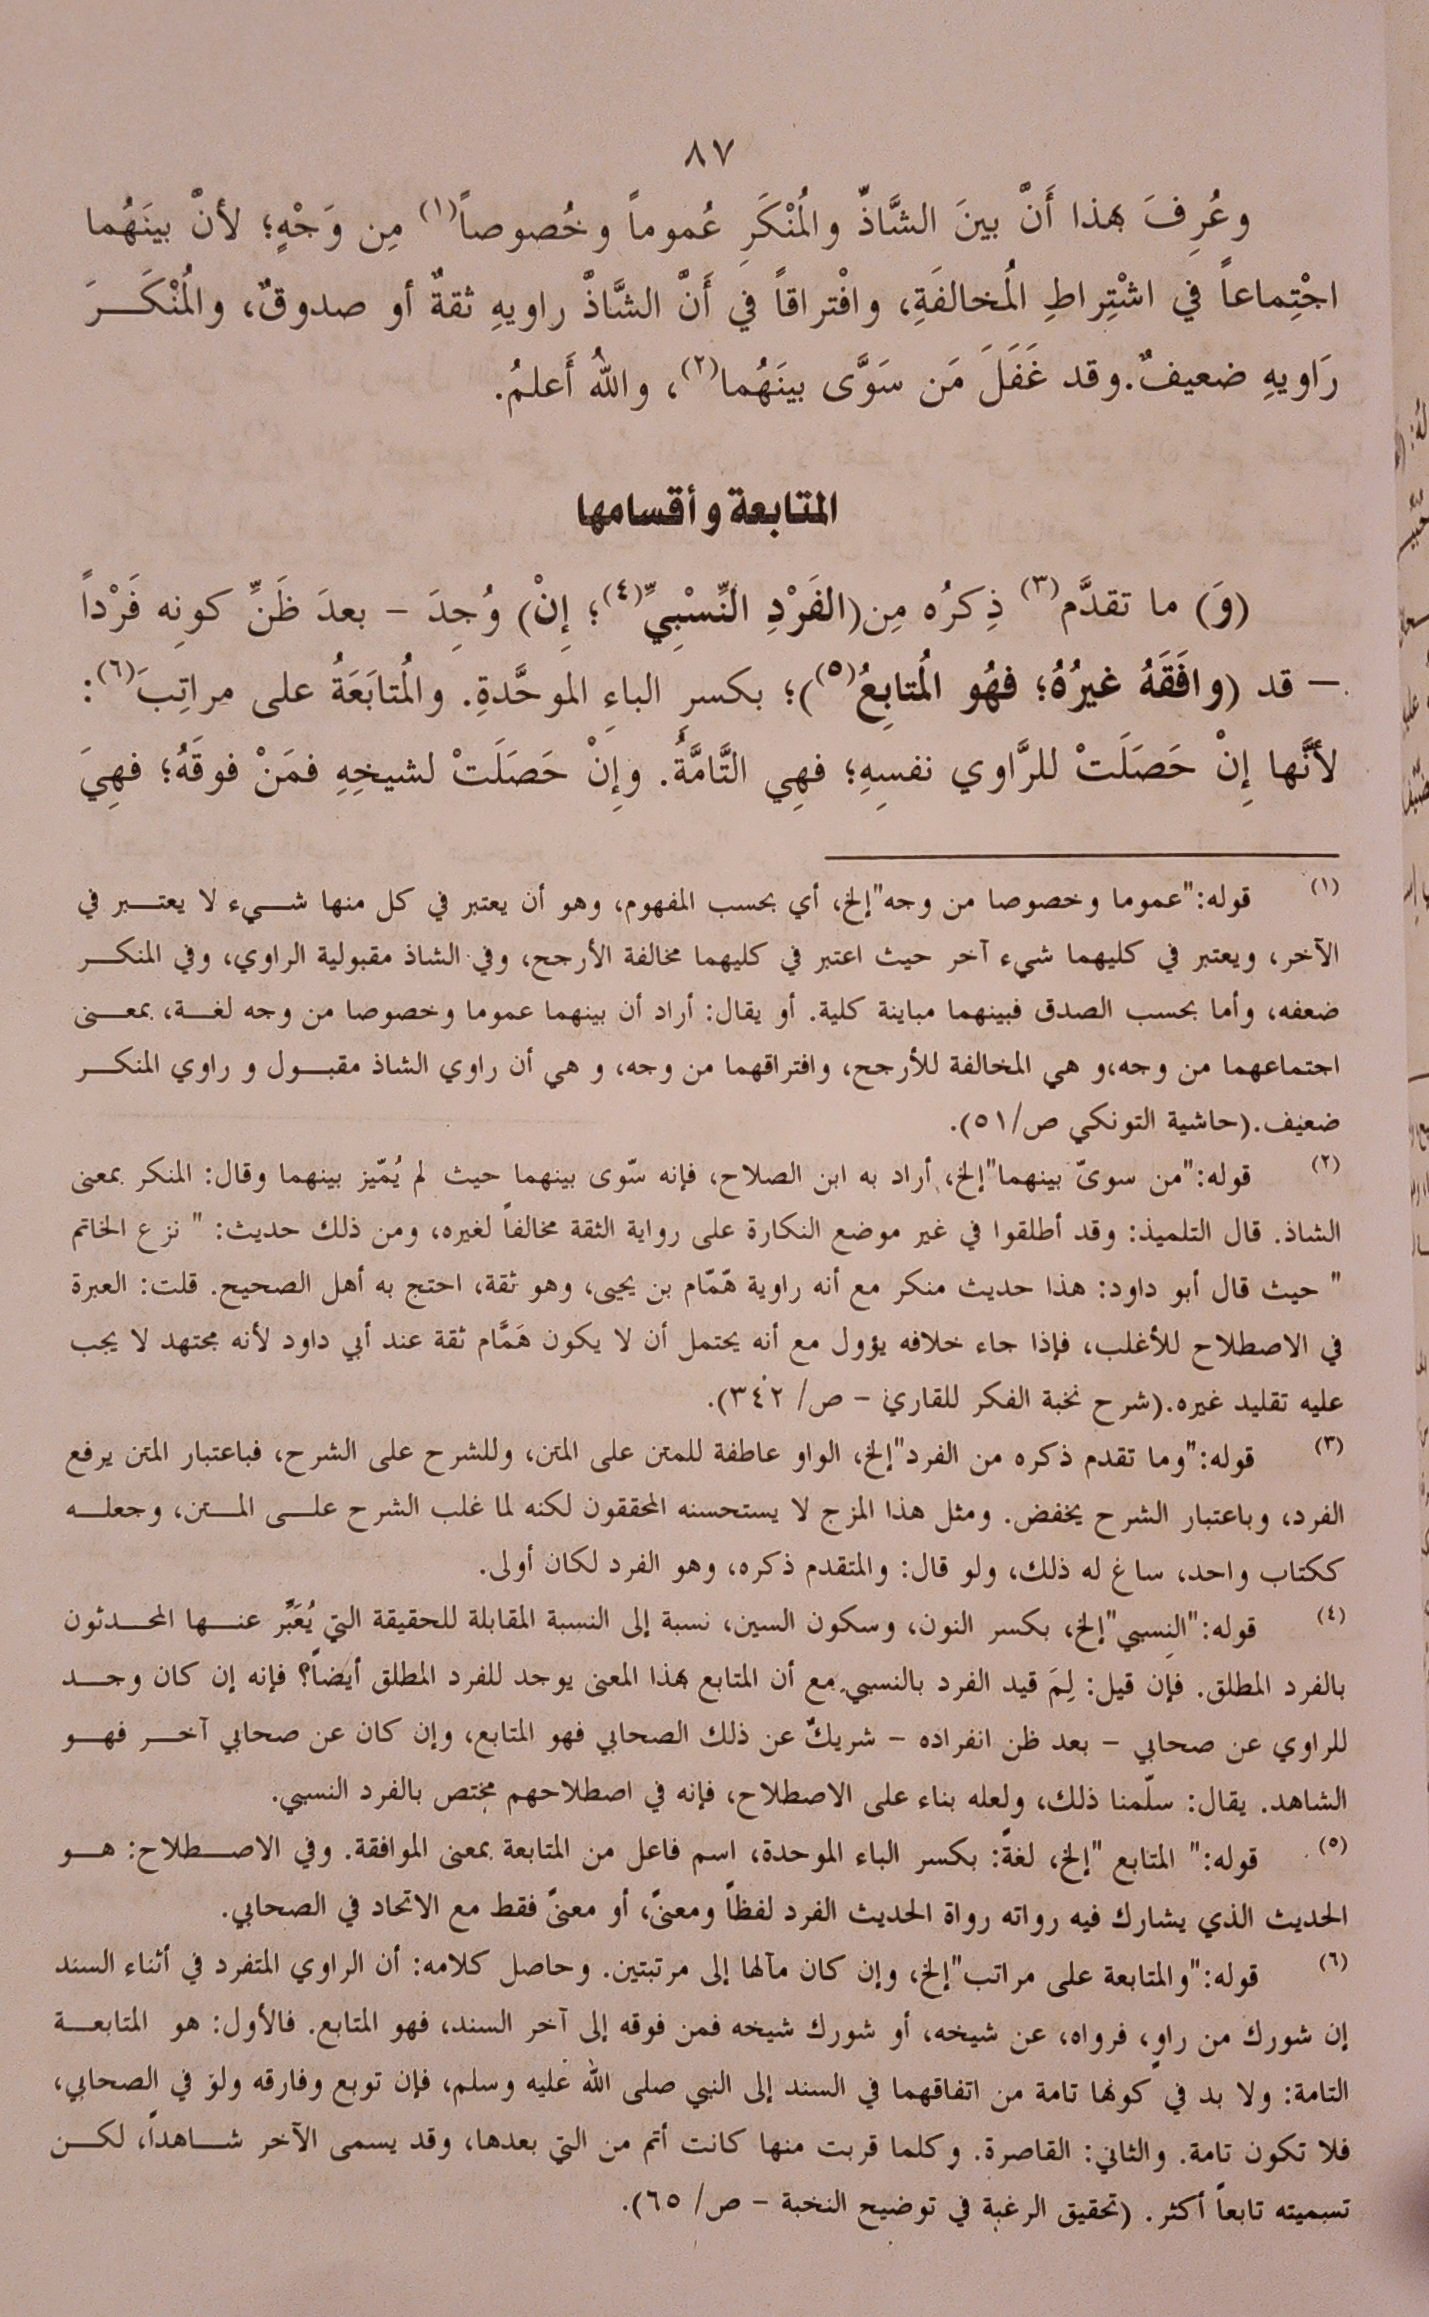 ٨٧
وعُرِفَ بهذا أَنَّ بينَ الشَّاذِّ والُمنْكَرِ عُموماً وخُصوصاً(١) مِن وَجْهٍ؛ لأنَّ بينَهُما
اجْتِماعاً في اشْتِراطِ الُمخالفَةِ، وافْتراقاً في أَنَّ الشَّاذَّ راويهِ ثقةٌ أو صدوقٌ، والُمنْكَـــرَ
رَاويهِ ضعيفٌ.وقد غَفَلَ مَن سَوَّى بينَهُما(٢)، واللهُ أَعلمُ.
المتابعة وأقسامها
(وَ) ما تقدَّم(٣) ذِكرُه مِن(الفَرْدِ النِّسْبِيِّ(٤)؛ إِنْ) وُجِدَ – بعدَ ظَنِّ كونِه فَرْداً
– قد (وافَقَهُ غيرُهُ؛ فهُو الُمتابِعُ(٥))؛ بكسرِ الباءِ الموحَّدةِ. والُمتابَعَةُ على مراتِبَ(٦):
لأنَّها إِنْ حَصَلَتْ للرَّاوي نفسِهِ؛ فهِي التَّامَّةُ. وإِنْ حَصَلَتْ لشيخِهِ فمَنْ فوقَهُ؛ فهِيَ
(١) قوله:"عموما وخصوصا من وجه"إلخ، أي بحسب المفهوم، وهو أن يعتبر في كل منها شــيء لا يعتـــبر في
الآخر، ويعتبر في كليهما شيء آخر حيث اعتبر في كليهما مخالفة الأرجح، وفي الشاذ مقبولية الراوي، وفي المنكـــر
ضعفه، وأما بحسب الصدق فبينهما مباينة كلية. أو يقال: أراد أن بينهما عموما وخصوصا من وجه لغـــة، بمعـــنى
اجتماعهما من وجه،و هي المخالفة للأرجح، وافتراقهما من وجه، و هي أن راوي الشاذ مقبـــول و راوي المنكـــر
ضعيف.(حاشية التونكي ص/٥١).
(٢) قوله:"من سوىّ بينهما"إلخ، أراد به ابن الصلاح، فإنه سّوى بينهما حيث لم يُمّيز بينهما وقال: المنكر بمعنى
الشاذ. قال التلميذ: وقد أطلقوا في غير موضع النكارة على رواية الثقة مخالفاً لغيره، ومن ذلك حديث: " نزع الخاتم
" حيث قال أبو داود: هذا حديث منكر مع أنه راوية همّام بن يحيى، وهو ثقة، احتج به أهل الصحيح. قلت: العبرة
في الاصطلاح للأغلب، فإذا جاء خلافه يؤول مع أنه يحتمل أن لا يكون هَمَّام ثقة عند أبي داود لأنه مجتهد لا يجب
عليه تقليد غيره.(شرح نخبة الفكر للقاري – ص/ ٣٤٢).
(٣) قوله:"وما تقدم ذكره من الفرد"إلخ، الواو عاطفة للمتن على المتن، وللشرح على الشرح، فباعتبار المتن يرفع
الفرد، وباعتبار الشرح يخفض. ومثل هذا المزج لا يستحسنه المحققون لكنه لما غلب الشرح علـــى المـــتن، وجعلـــه
ككتاب واحد، ساغ له ذلك، ولو قال: والمتقدم ذكره، وهو الفرد لكان أولى.
(٤) قوله:"النِسبي"إلخ، بكسر النون، وسكون السين، نسبة إلى النسبة المقابلة للحقيقة التي يُعَبَّر عنـــها المحـــدثون
بالفرد المطلق. فإن قيل: لِمَ قيد الفرد بالنسبي مع أن المتابع بهذا المعنى يوجد للفرد المطلق أيضاً؟ فإنه إن كان وجـــد
للراوي عن صحابي – بعد ظن انفراده – شريكٌ عن ذلك الصحابي فهو المتابع، وإن كان عن صحابي آخـــر فهـــو
الشاهد. يقال: سلّمنا ذلك، ولعله بناء على الاصطلاح، فإنه في اصطلاحهم مختص بالفرد النسبي.
(٥) قوله:" المتابع "إلخ، لغةً: بكسر الباء الموحدة، اسم فاعل من المتابعة بمعنى الموافقة. وفي الاصـــطلاح: هـــو
الحديث الذي يشارك فيه رواته رواة الحديث الفرد لفظاً ومعنىً، أو معنىً فقط مع الاتحاد في الصحابي.
(٦) قوله:"والمتابعة على مراتب"إلخ، وإن كان مآلها إلى مرتبتين. وحاصل كلامه: أن الراوي المتفرد في أثناء السند
إن شورك من راوٍ، فرواه، عن شيخه، أو شورك شيخه فمن فوقه إلى آخر السند، فهو المتابع. فالأول: هو المتابعـــة
التامة: ولا بد في كونها تامة من اتفاقهما في السند إلى النبي صلى الله عليه وسلم، فإن توبع وفارقه ولو في الصحابي،
فلا تكون تامة. والثاني: القاصرة. وكلما قربت منها كانت أتم من التي بعدها، وقد يسمى الآخر شـــاهداً، لكـــن
تسميته تابعاً أكثر. (تحقيق الرغبة في توضيح النخبة – ص/ ٦٥).